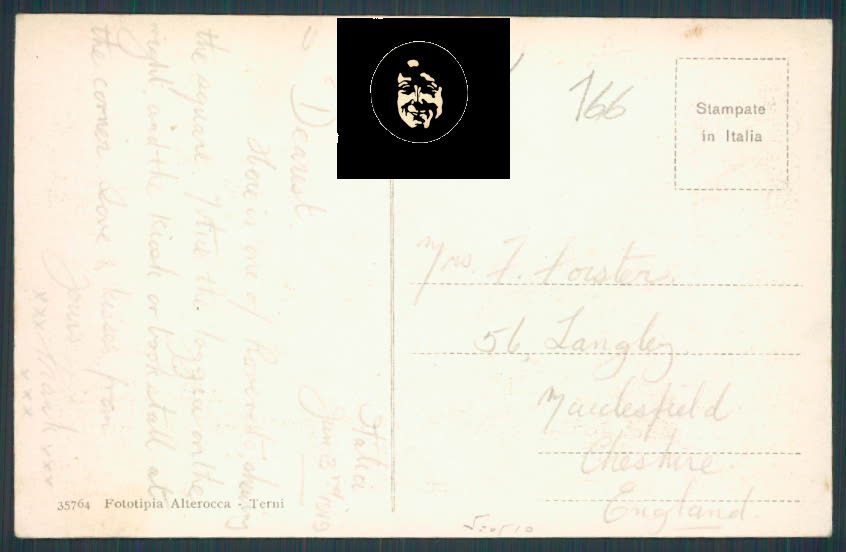 Italia
Jan 3rd 1919
Dearest.
Above is one of showing
the square. Notice the loggia on the
right, and the kiosk or bookstall at
the corner. Love & kisses from
Yours
xxx Mark xxx
xxx
166
Stampate
in Italia
Mrs. F. Forster.
56, Langley
Macclesfield
Cheshire.
England.
35764 Fototipia Alterocca - Terni